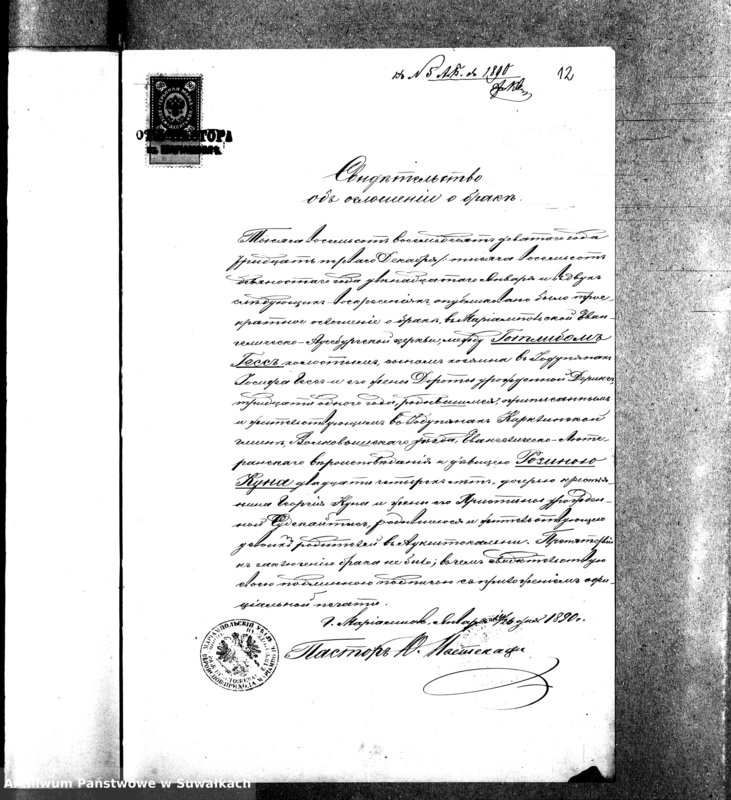 къ № 5 А.Б. съ 1890
12
Свидѣтельство
объ оглошеніи о бракѣ.
Тысяча восемьсотъ восемьдесятъ девятаго года
тридцать перваго Декабря / тысяча восемьсотъ
девяностаго года двѣнадцатаго Января и въ двухъ
слѣдующихъ воскресеніяхъ опубликовано было трое-
кратное оглошеніе о бракѣ, въ Маріампольской Еван-
гелическо-Аугсбургской церкви, между Готлибомъ
Гессъ, холостымъ, сыномъ хозяина въ Годупянахъ
Іосифа Гессъ и его жены Дороты урожденной
тридцати одного года, родившимся, приписаннымъ
и жительствующимъ въ Годупянахъ Каркл​инской
гмины, Волковышскаго уѣзда, Евангелическо-Люте-
ранскаго вѣроисповѣданія и дѣвицею Розиною
Куна двадцати четырехъ лѣтъ, дочерью крестья-
нина Георгія Куна и жены его Христины урожден-
ной родившеюся и жительствующею
у своихъ родителей въ Препятствій
къ заключенію брака не было; въ чемъ свидѣтельствую
своею подлинною подписью съ приложеніемъ офи-
ціальной печати.
г. Маріамполь, Января дня 1890 г.
Пасторъ
МАРІАМПОЛЬСКІЙ УѢЗДЪ
Archiwum Państwowe w Suwałkach